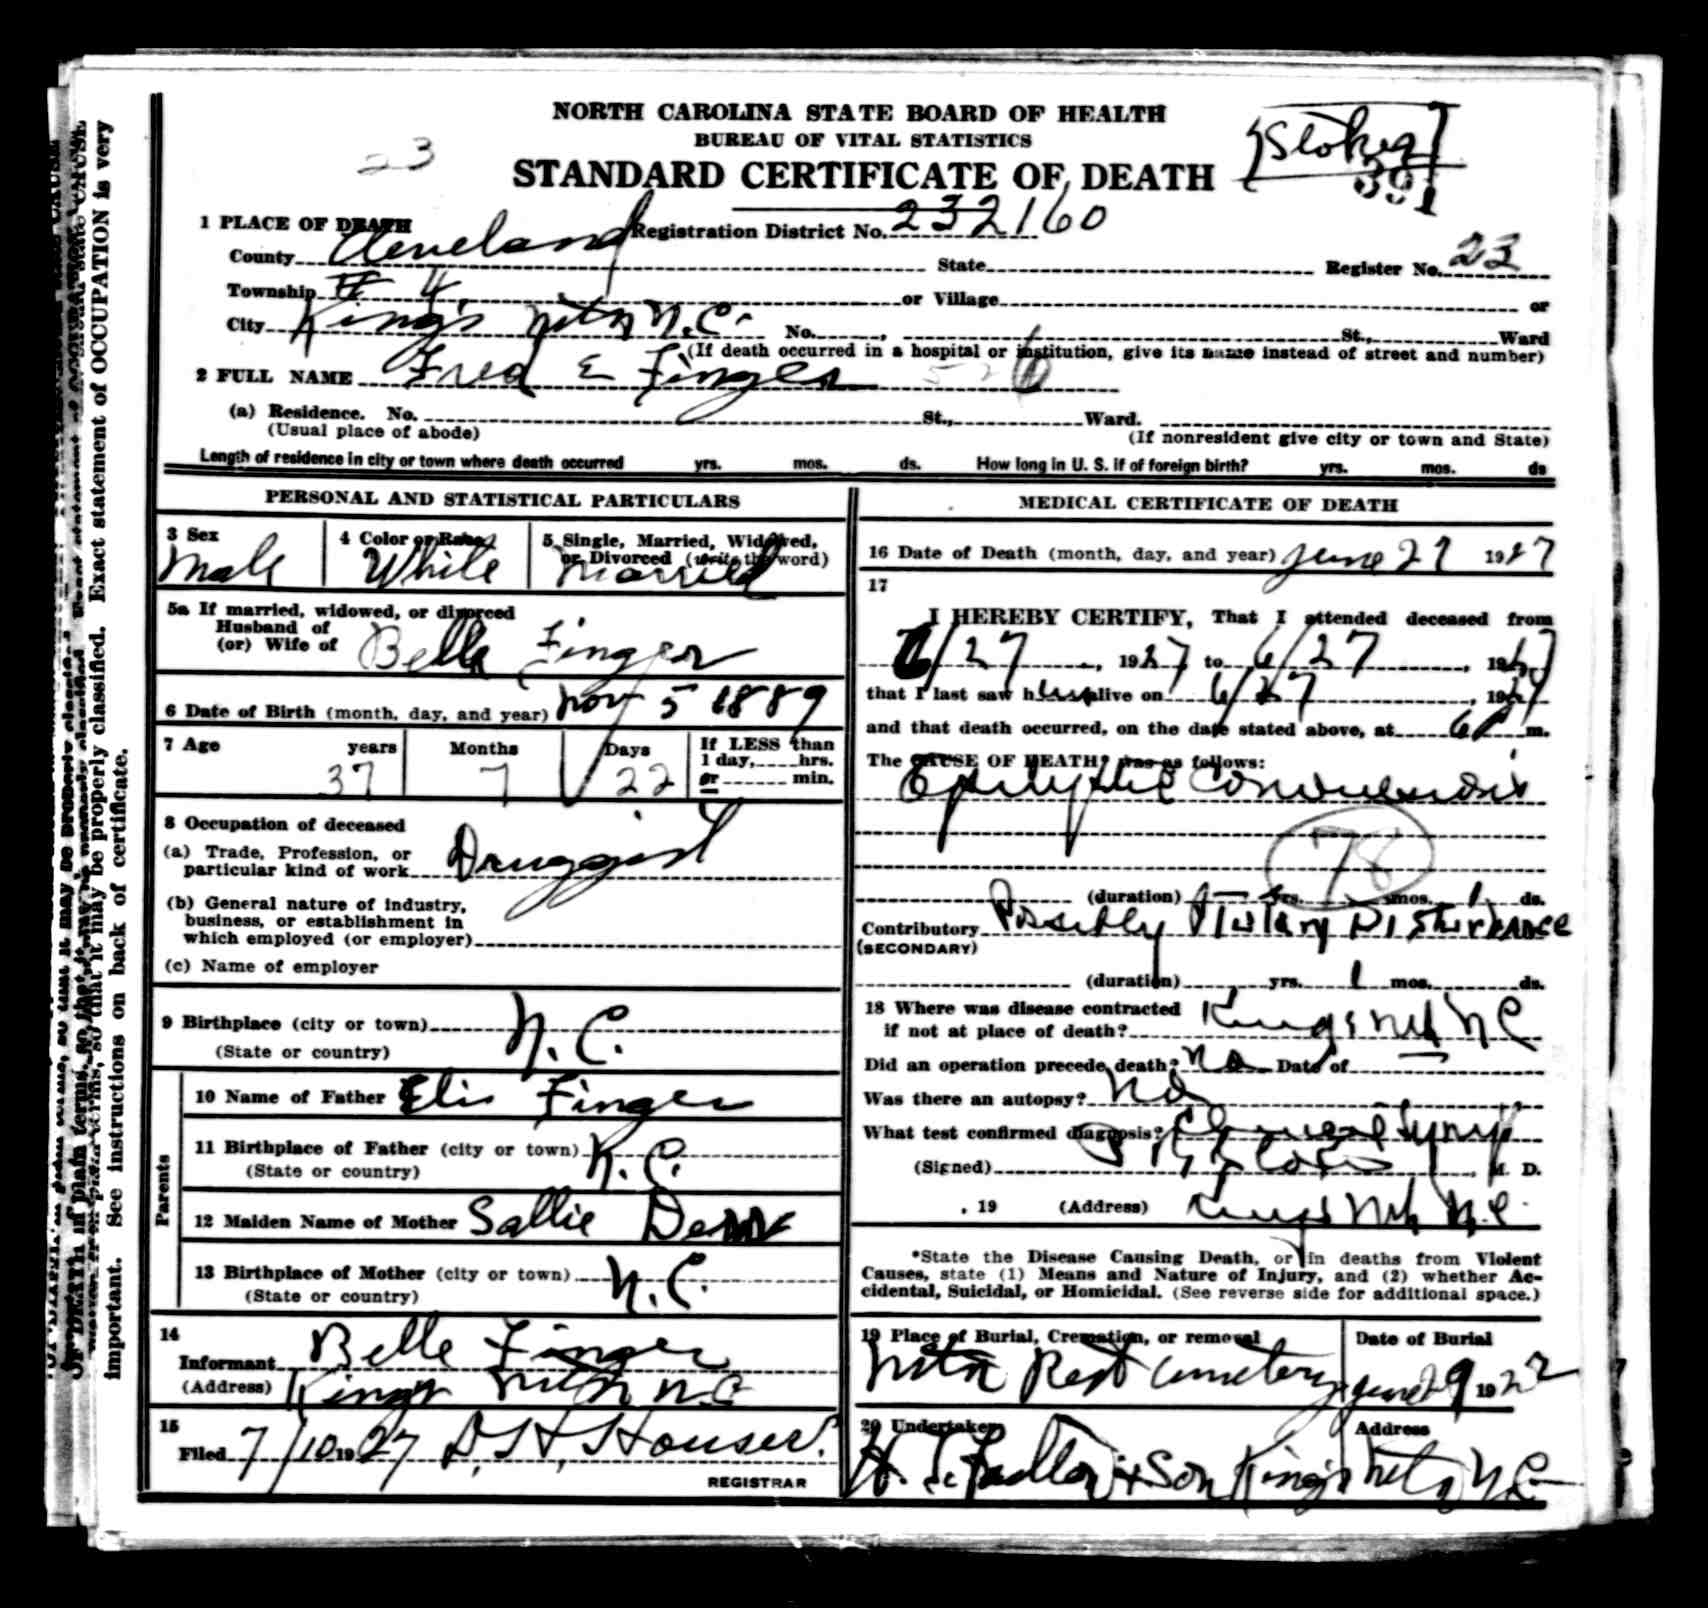 NORTH CAROLINA STATE BOARD OF HEALTH
BUREAU OF VITAL STATISTICS
STANDARD CERTIFICATE OF DEATH
[Stokes]
391
23
1 PLACE OF DEATH Registration District No. 232160
County Cleveland State Register No. 23
Township # 4, or Village or
City Kings Mtn N.C. No. , St., Ward
(If death occurred in a hospital or institution, give its name instead of street and number)
2 FULL NAME Fred E Finger
(a) Residence. No. St., Ward.
(Usual place of abode) (If nonresident give city or town and State)
Length of residence in city or town where death occurred yrs. mos. ds. How long in U. S. if of foreign birth? yrs. mos. ds
PERSONAL AND STATISTICAL PARTICULARS
3 Sex
Male
4 Color or Race
White
5 Single, Married, Widowed,
or Divorced (write the word)
Married
5a If married, widowed, or divorced
Husband of
(or) Wife of Belle Finger
6 Date of Birth (month, day, and year) Nov 5 1889
7 Age years Months Days If LESS than
1 day, hrs.
or min.
37 7 22
8 Occupation of deceased
(a) Trade, Profession, or
particular kind of work Druggist
(b) General nature of industry,
business, or establishment in
which employed (or employer)
(c) Name of employer
9 Birthplace (city or town) N.C.
(State or country)
Parents
10 Name of Father Elis Finger
11 Birthplace of Father (city or town) N.C.
(State or country)
12 Maiden Name of Mother Sallie
13 Birthplace of Mother (city or town) N.C.
(State or country)
14
Informant Belle Finger
(Address) Kings Mtn N.C
15
Filed 7/10 1927 D. H. Houser.
REGISTRAR
MEDICAL CERTIFICATE OF DEATH
16 Date of Death (month, day, and year) June 27 1927
17
I HEREBY CERTIFY, That I attended deceased from
6/27, 1927 to 6/27, 1927
that I last saw him alive on 6/27, 1927
and that death occurred, on the date stated above, at 6 P m.
The CAUSE OF DEATH* was as follows:
Epilyptic Convulsions
78
(duration) yrs. mos. 1 ds.
Contributory Possibly Pituitary Disturbance
(SECONDARY)
(duration) yrs. 1 mos. ds.
18 Where was disease contracted
if not at place of death? Kings Mt N C
Did an operation precede death? No Date of
Was there an autopsy? No
What test confirmed diagnosis? Clinical Symp
(Signed) , M. D.
, 19 (Address) Kings Mt N.C.
*State the Disease Causing Death, or in deaths from Violent
Causes, state (1) Means and Nature of Injury, and (2) whether Ac-
cidental, Suicidal, or Homicidal. (See reverse side for additional space.)
19 Place of Burial, Cremation, or removal Date of Burial
Mtn Rest Cemetery June 29 1927
20 Undertaker Address
H. T. Fulton & Son Kings Mtn N.C.
OF DEATH in plain terms, so that it may be properly classified. Exact statement of OCCUPATION is very
important. See instructions on back of certificate.